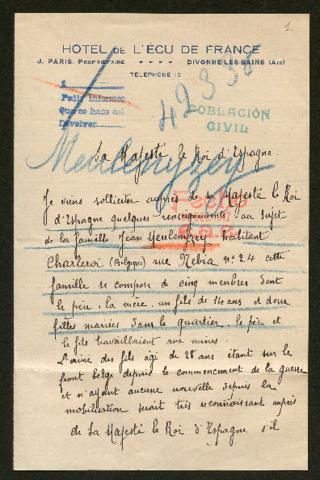 1.
HOTEL DE L'ÉCU DE FRANCE
J. PARIS, PROPRIETAIRE DIVONNE-LES-BAINS (AIN)
TELEPHONE 13
1
Pedir informes
Devolver
49336
POBLACIÓN
CIVIL
Sa Majesté le Roi d'Espagne
Je viens solliciter auprès de sa Majesté le Roi
d'Espagne quelques renseignements au sujet
de la famille Jean habitant
Charleroi (Belgique) rue Nebia nº 24 cette
famille se compose de cinq membres dont
le père, la mère, un fils de 14 ans et deux
filles mariées dans le quartier, le père et
le fils travaillaient aux mines
L'ainé des fils agé de 28 ans étant sur le
front belge depuis le commencement de la guerre
et n'ayant aucune nouvelle depuis la
mobilisation serait très reconnaissant auprès
de Sa Majesté le Roi d'Espagne s'il